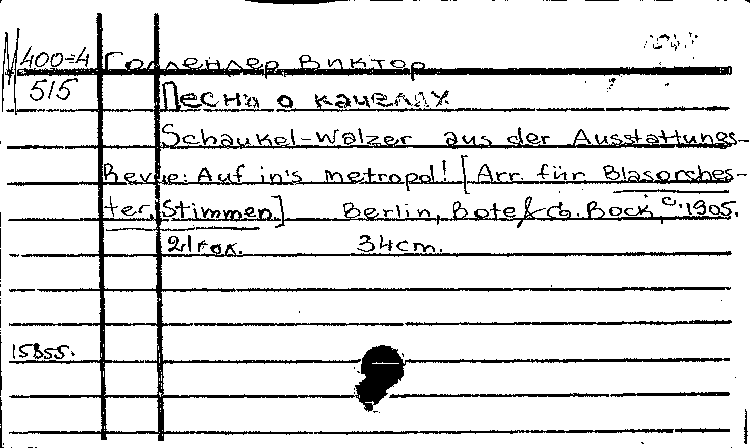 М 400=4 Голлендер Виктор
515 Песня о качелях
Schaukel-Walzer aus der Ausstattungs-
Revue: Auf in's metropol! [Arr. für Blasorches-
ter. Stimmen.] Berlin, Bote & G. Bock, c. 1905.
34 cm.
15855.